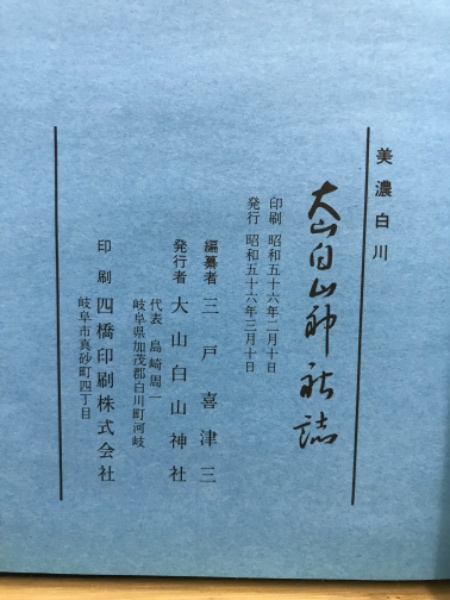 美濃白川
大山白山神社誌
印刷 昭和五十六年二月十日
発行 昭和五十六年三月十日
編纂者 三戸喜津三
発行者 大山白山神社
代表 島崎周一
岐阜県加茂郡白川町河岐
印刷 四橋印刷株式会社
岐阜市真砂町四丁目